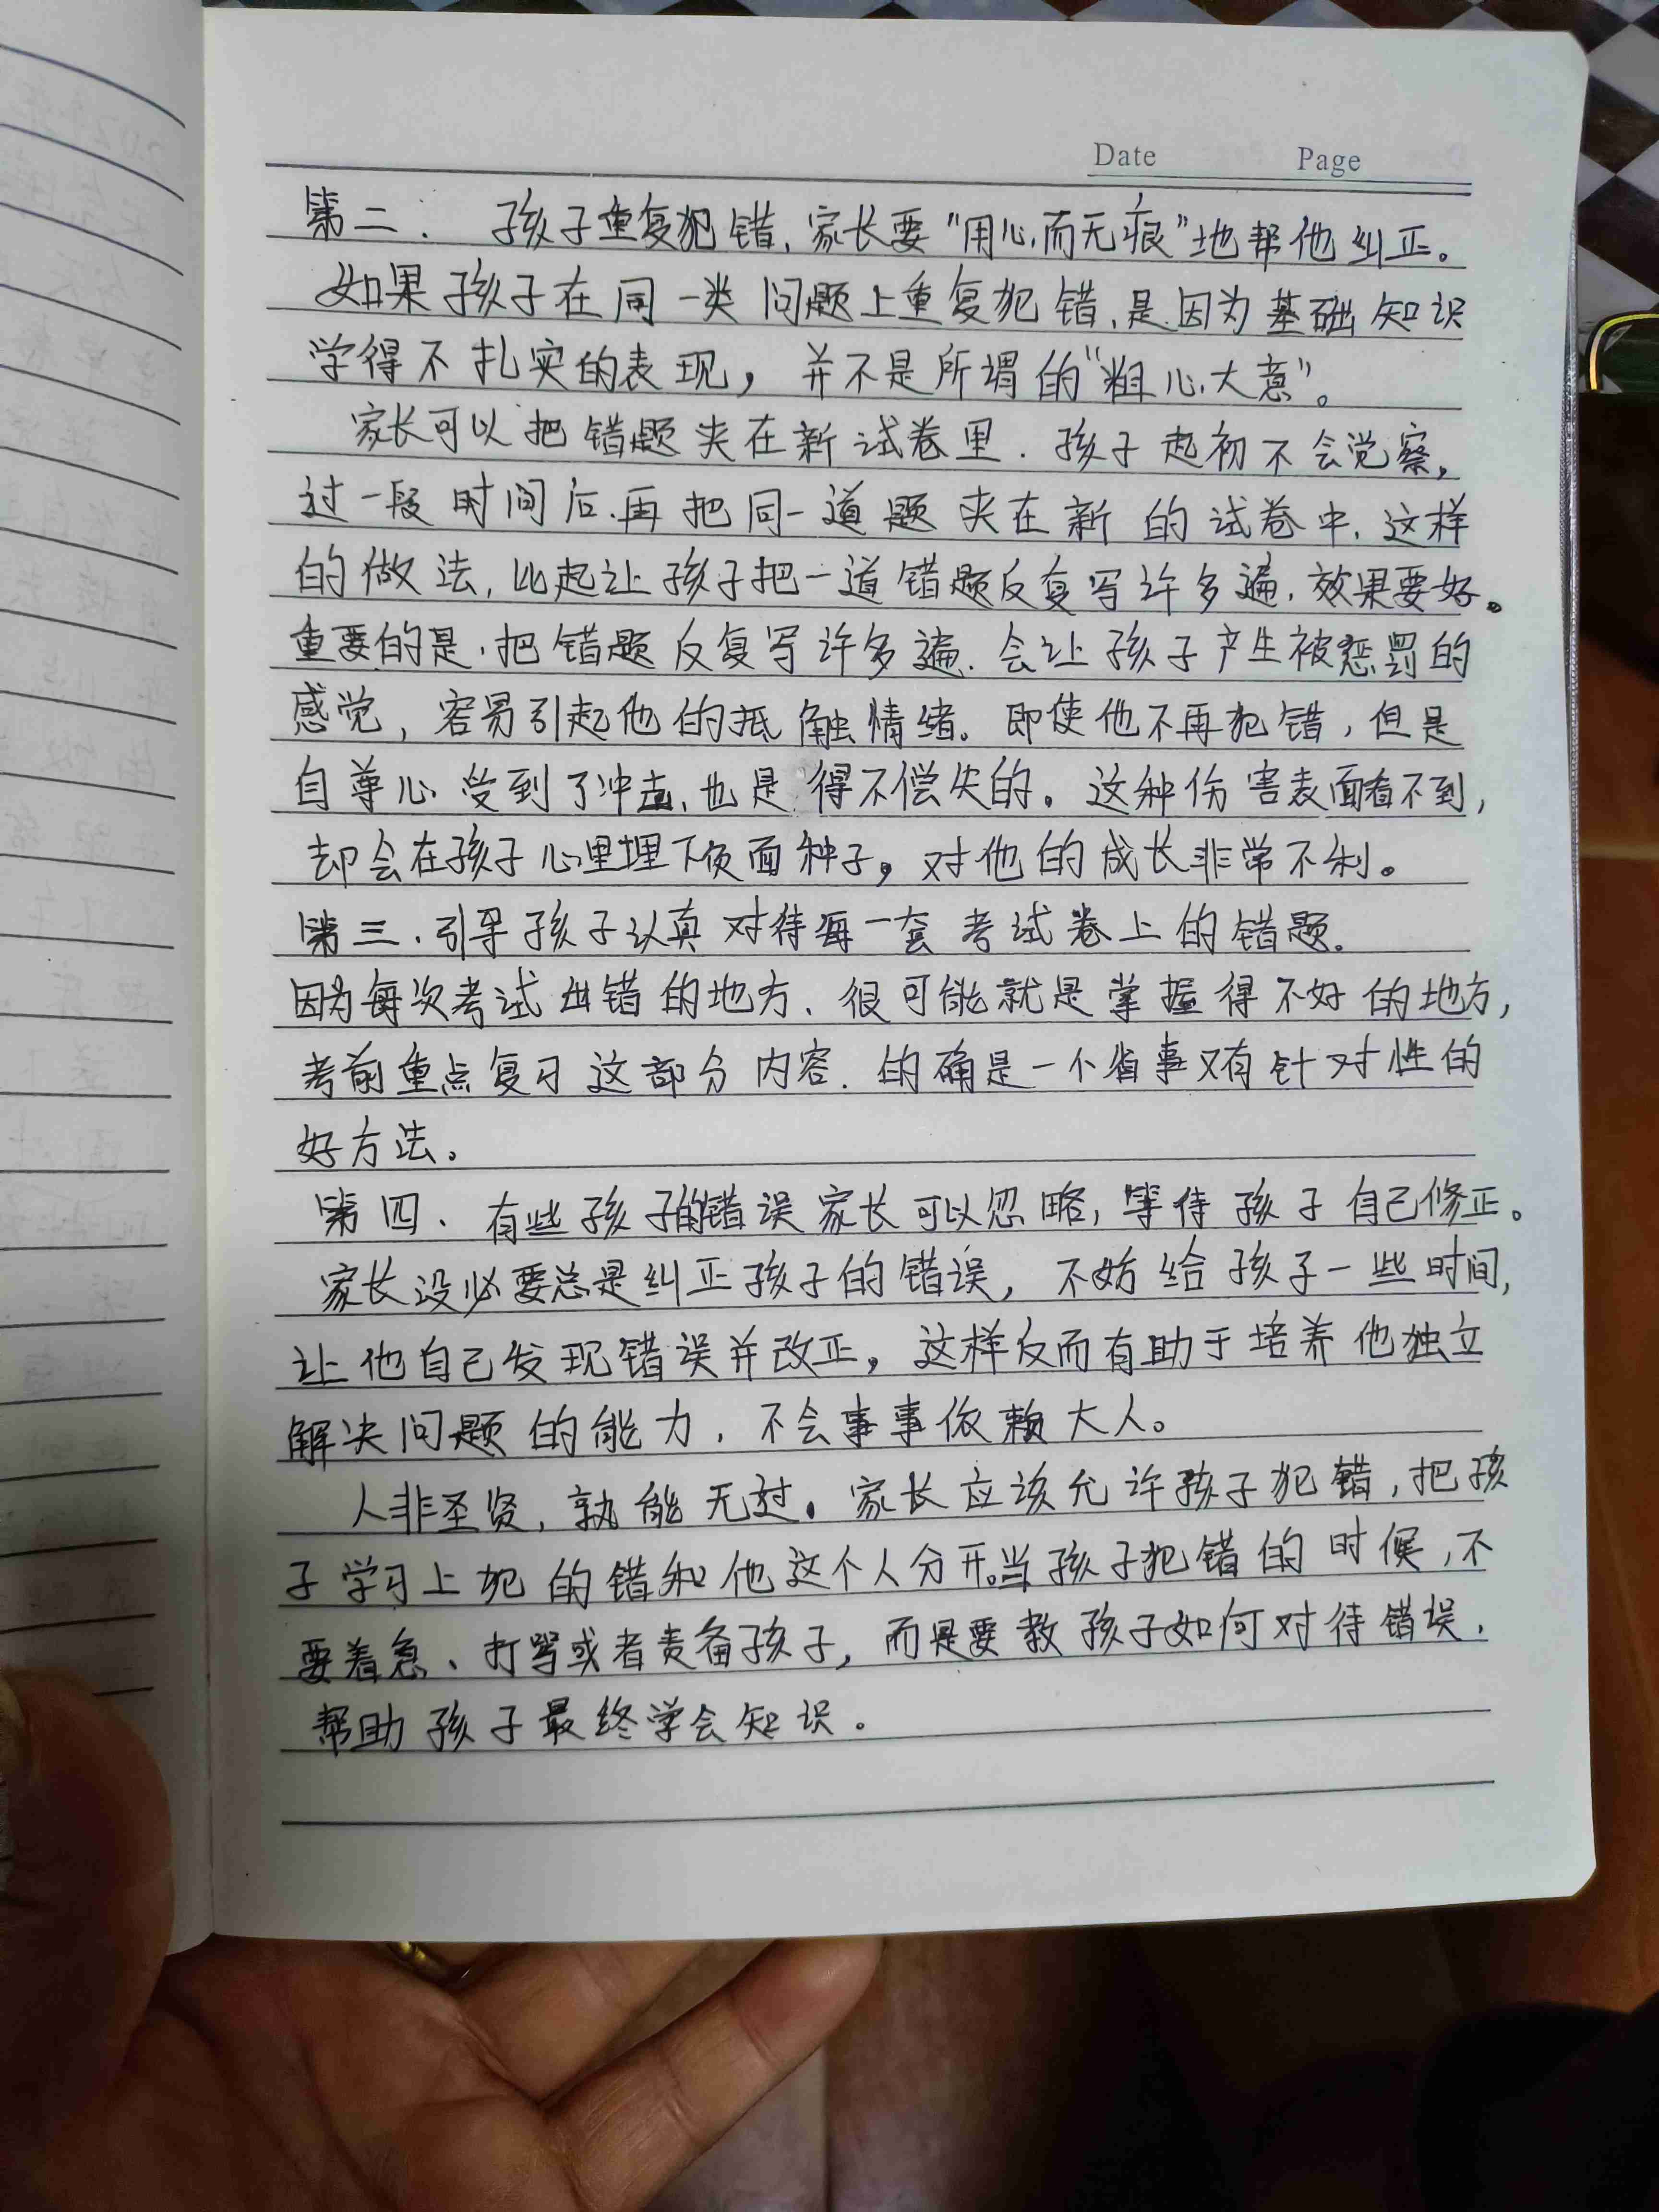 Date Page
第二. 孩子重复犯错,家长要“用心而无痕”地帮他纠正。
如果孩子在同一类问题上重复犯错,是因为基础知识
学得不扎实的表现,并不是所谓的“粗心大意”。
家长可以把错题夹在新试卷里.孩子起初不会觉察,
过一段时间后.再把同一道题夹在新的试卷中,这样
的做法,比起让孩子把一道错题反复写许多遍,效果要好。
重要的是,把错题反复写许多遍,会让孩子产生被惩罚的
感觉,容易引起他的抵触情绪。即使他不再犯错,但是
自尊心受到了冲击,也是得不偿失的。这种伤害表面看不到,
却会在孩子心里埋下负面种子,对他的成长非常不利。
第三.引导孩子认真对待每一套考试卷上的错题.
因为每次考试出错的地方.很可能就是掌握得不好的地方,
考前重点复习这部分内容.的确是一个省事又有针对性的
好方法。
第四、有些孩子的错误家长可以忽略,等待孩子自己修正。
家长没必要总是纠正孩子的错误,不妨给孩子一些时间,
让他自己发现错误并改正,这样反而有助于培养他独立
解决问题的能力,不会事事依赖大人。
人非圣贤,孰能无过。家长应该允许孩子犯错,把孩
子学习上犯的错和他这个人分开。当孩子犯错的时候,不
要着急、打骂或者责备孩子,而是要教孩子如何对待错误,
帮助孩子最终学会知识。